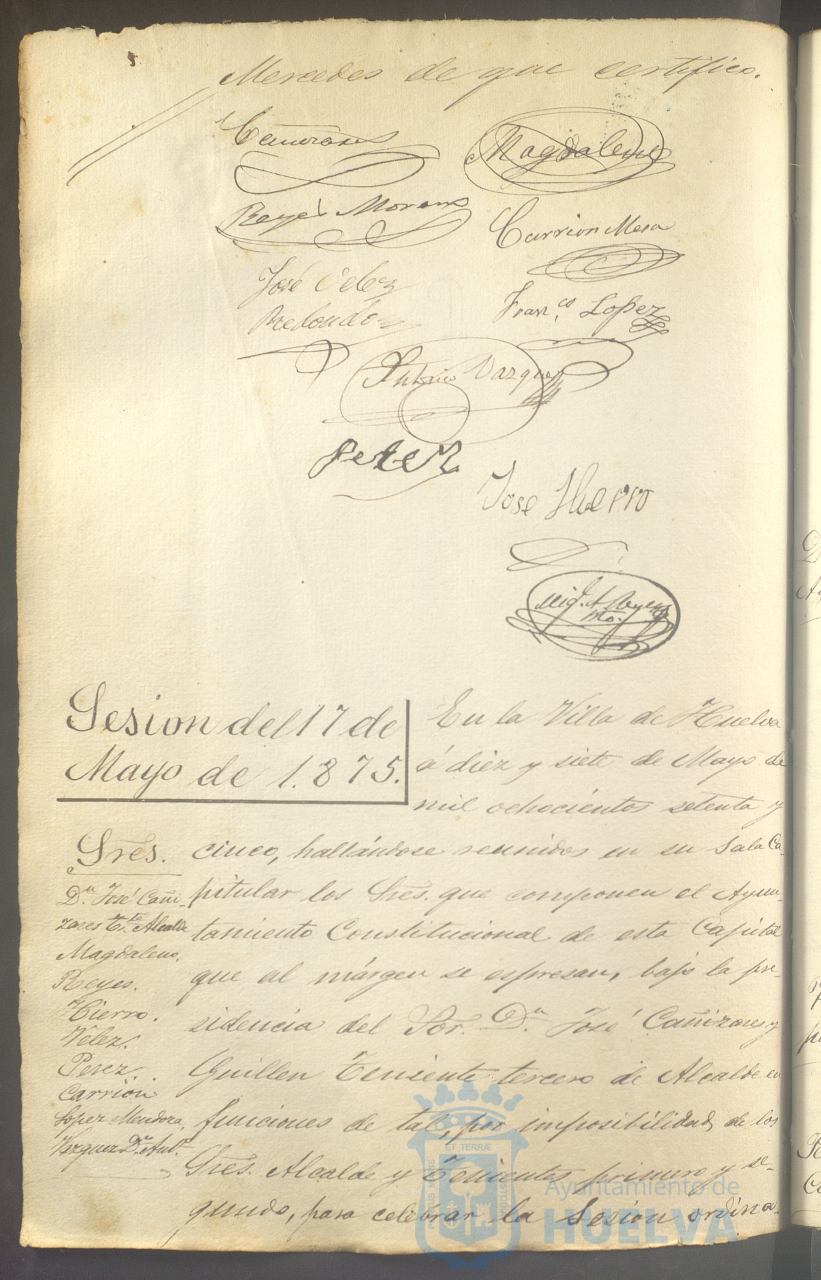 Mercedes de que certifico.
Cañizares
Magdaleno
Reyes Moreno
Carrion Mesa
José Velez
Redondo
Fran.co Lopez
Antonio Vazquez
Perez
José Hierro
Mig. A. Reyes
Sesion del 17 de
Mayo de 1.875.
En la Villa de Huelva
á diez y siete de Mayo de
mil ochocientos setenta y
Sres.
Dn. José Cañi-
zares Tte. Alcalde
Magdaleno.
Reyes.
Hierro.
Velez.
Perez.
Carrión.
Lopez Mendoza,
Vazquez Dn. Ant.o
cinco, hallándose reunidos en su Sala Ca-
pitular los Sres. que componen el Ayun-
tamiento Constitucional de esta Capital
que al márgen se espresan, bajo la pre-
sidencia del Sor. Dn. José Cañizares y
Guillen Teniente tercero de Alcalde en
funciones de tal, por imposibilidad de los
Sres. Alcalde y Tenientes primero y se-
gundo, para celebrar la Sesion ordina-
ET TERRÆ
Ayuntamiento de
HUELVA